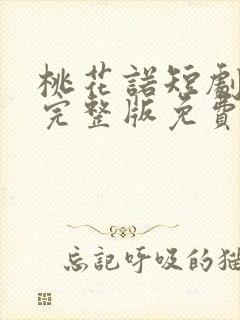 桃花諾短劇
完整版免費
忘記呼吸的猫